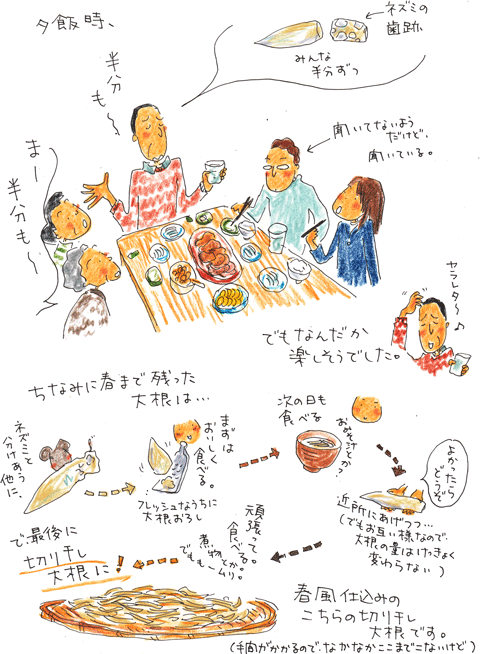 夕飯時、
ネズミの
歯跡
みんな
半分ずつ
半分
も～
聞いてないよう
だけど、
聞いている。
まー
半分も～
ヤラレタ～♪
でもなんだか
楽しそうでした。
ちなみに春まで残った
大根は…
ネズミと
分けあう
他に、
まずは
おいしく
食べる。
フレッシュなうちに
大根おろし
次の日も
食べる
おみそとか?
よかったら
どうぞ
近所にあげつつ…
(でもお互い様なので、
大根の量はけっきょく
変わらない)
頑張って。
食べる。
煮物とか。
でももームリ。
で最後に
切り干し
大根に!
春風仕込みの
こちらの切り干し
大根です。
(手間がかかるので、なかなかここまでこないけど)